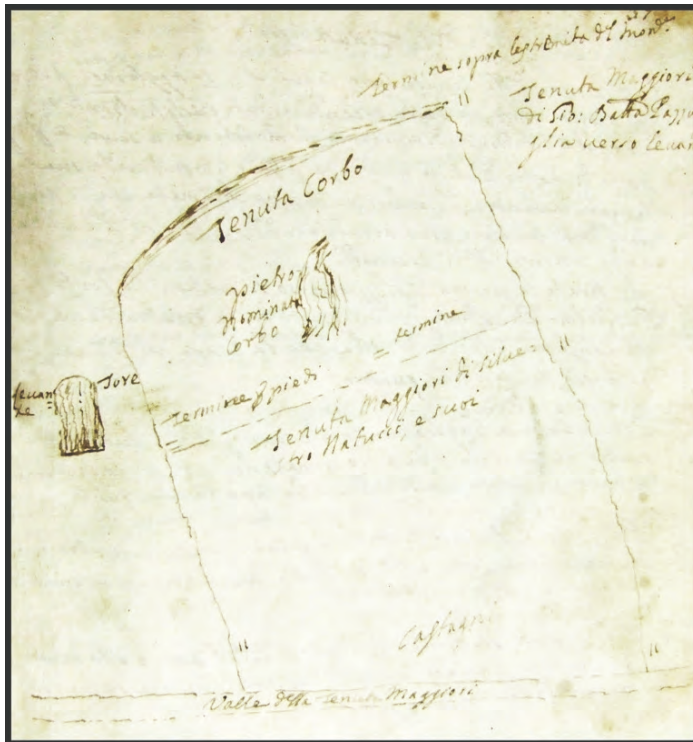 Termine sopra lestremita del mond.e
Tenuta Maggiori
di Gio: Batta Pazzu
glia verso levan
Tenuta Corbo
pietro
Nominato
Corbo
termine
Levan=
te
Tore
Termine piedi
Tenuta Maggiori di Silve=
tro Natucci, e suoi
Castagni
Valle della Tenuta Maggiori